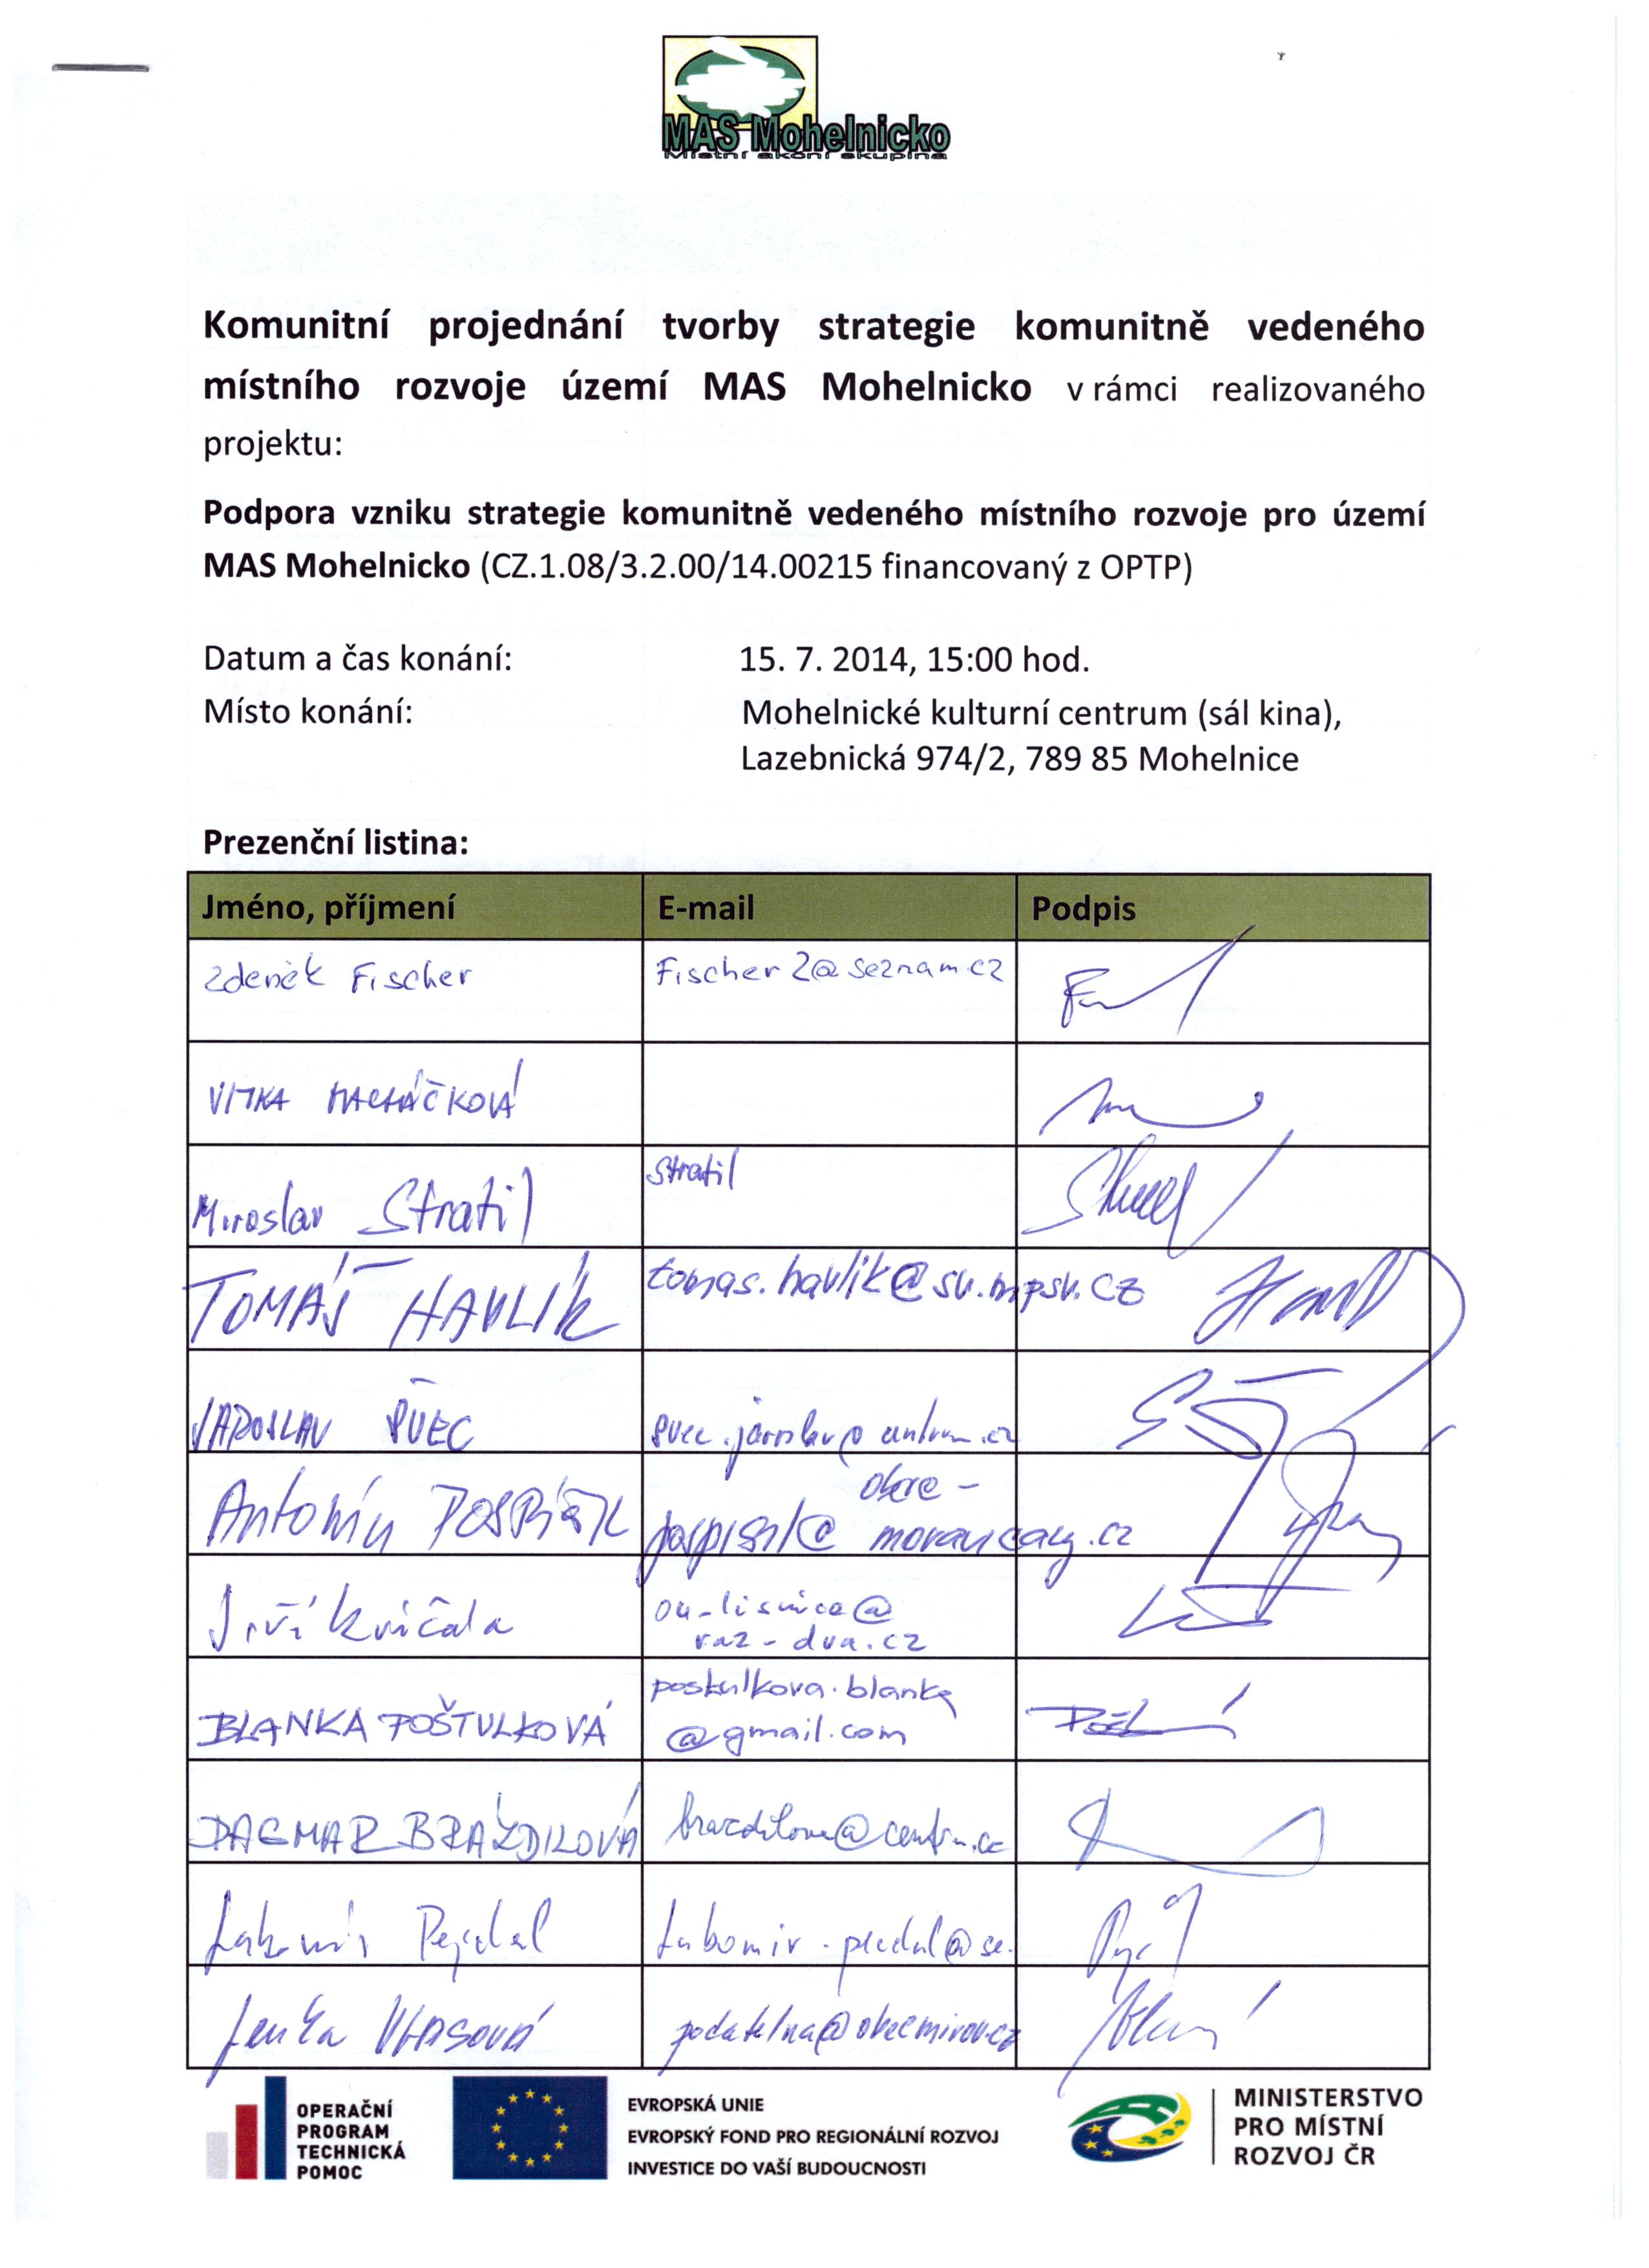 MAS Mohelnicko
Místní akční skupina
Komunitní projednání tvorby strategie komunitně vedeného
místního rozvoje území MAS Mohelnicko v rámci realizovaného
projektu:
Podpora vzniku strategie komunitně vedeného místního rozvoje pro území
MAS Mohelnicko (CZ.1.08/3.2.00/14.00215 financovaný z OPTP)
Datum a čas konání: 15. 7. 2014, 15:00 hod.
Místo konání: Mohelnické kulturní centrum (sál kina),
Lazebnická 974/2, 789 85 Mohelnice
Prezenční listina:
Jméno, příjmení E-mail Podpis
Zdeněk Fischer Fischer2@seznam.cz
VITKA MACHÁČKOVÁ
Miroslav Stratil Stratil
TOMÁŠ HAVLÍK tomas.havlik@su.mpsv.cz
JAROSLAV ŠVEC
Antonín
Jiří Kvíčala ou-lisnice@
raz-dva.cz
BLANKA POŠTULKOVÁ postulkova.blanka
@gmail.com
DAGMAR BRÁZDILOVÁ
Lenka podatelna@obecmirov.cz
OPERAČNÍ
PROGRAM
TECHNICKÁ
POMOC
EVROPSKÁ UNIE
EVROPSKÝ FOND PRO REGIONÁLNÍ ROZVOJ
INVESTICE DO VAŠÍ BUDOUCNOSTI
MINISTERSTVO
PRO MÍSTNÍ
ROZVOJ ČR